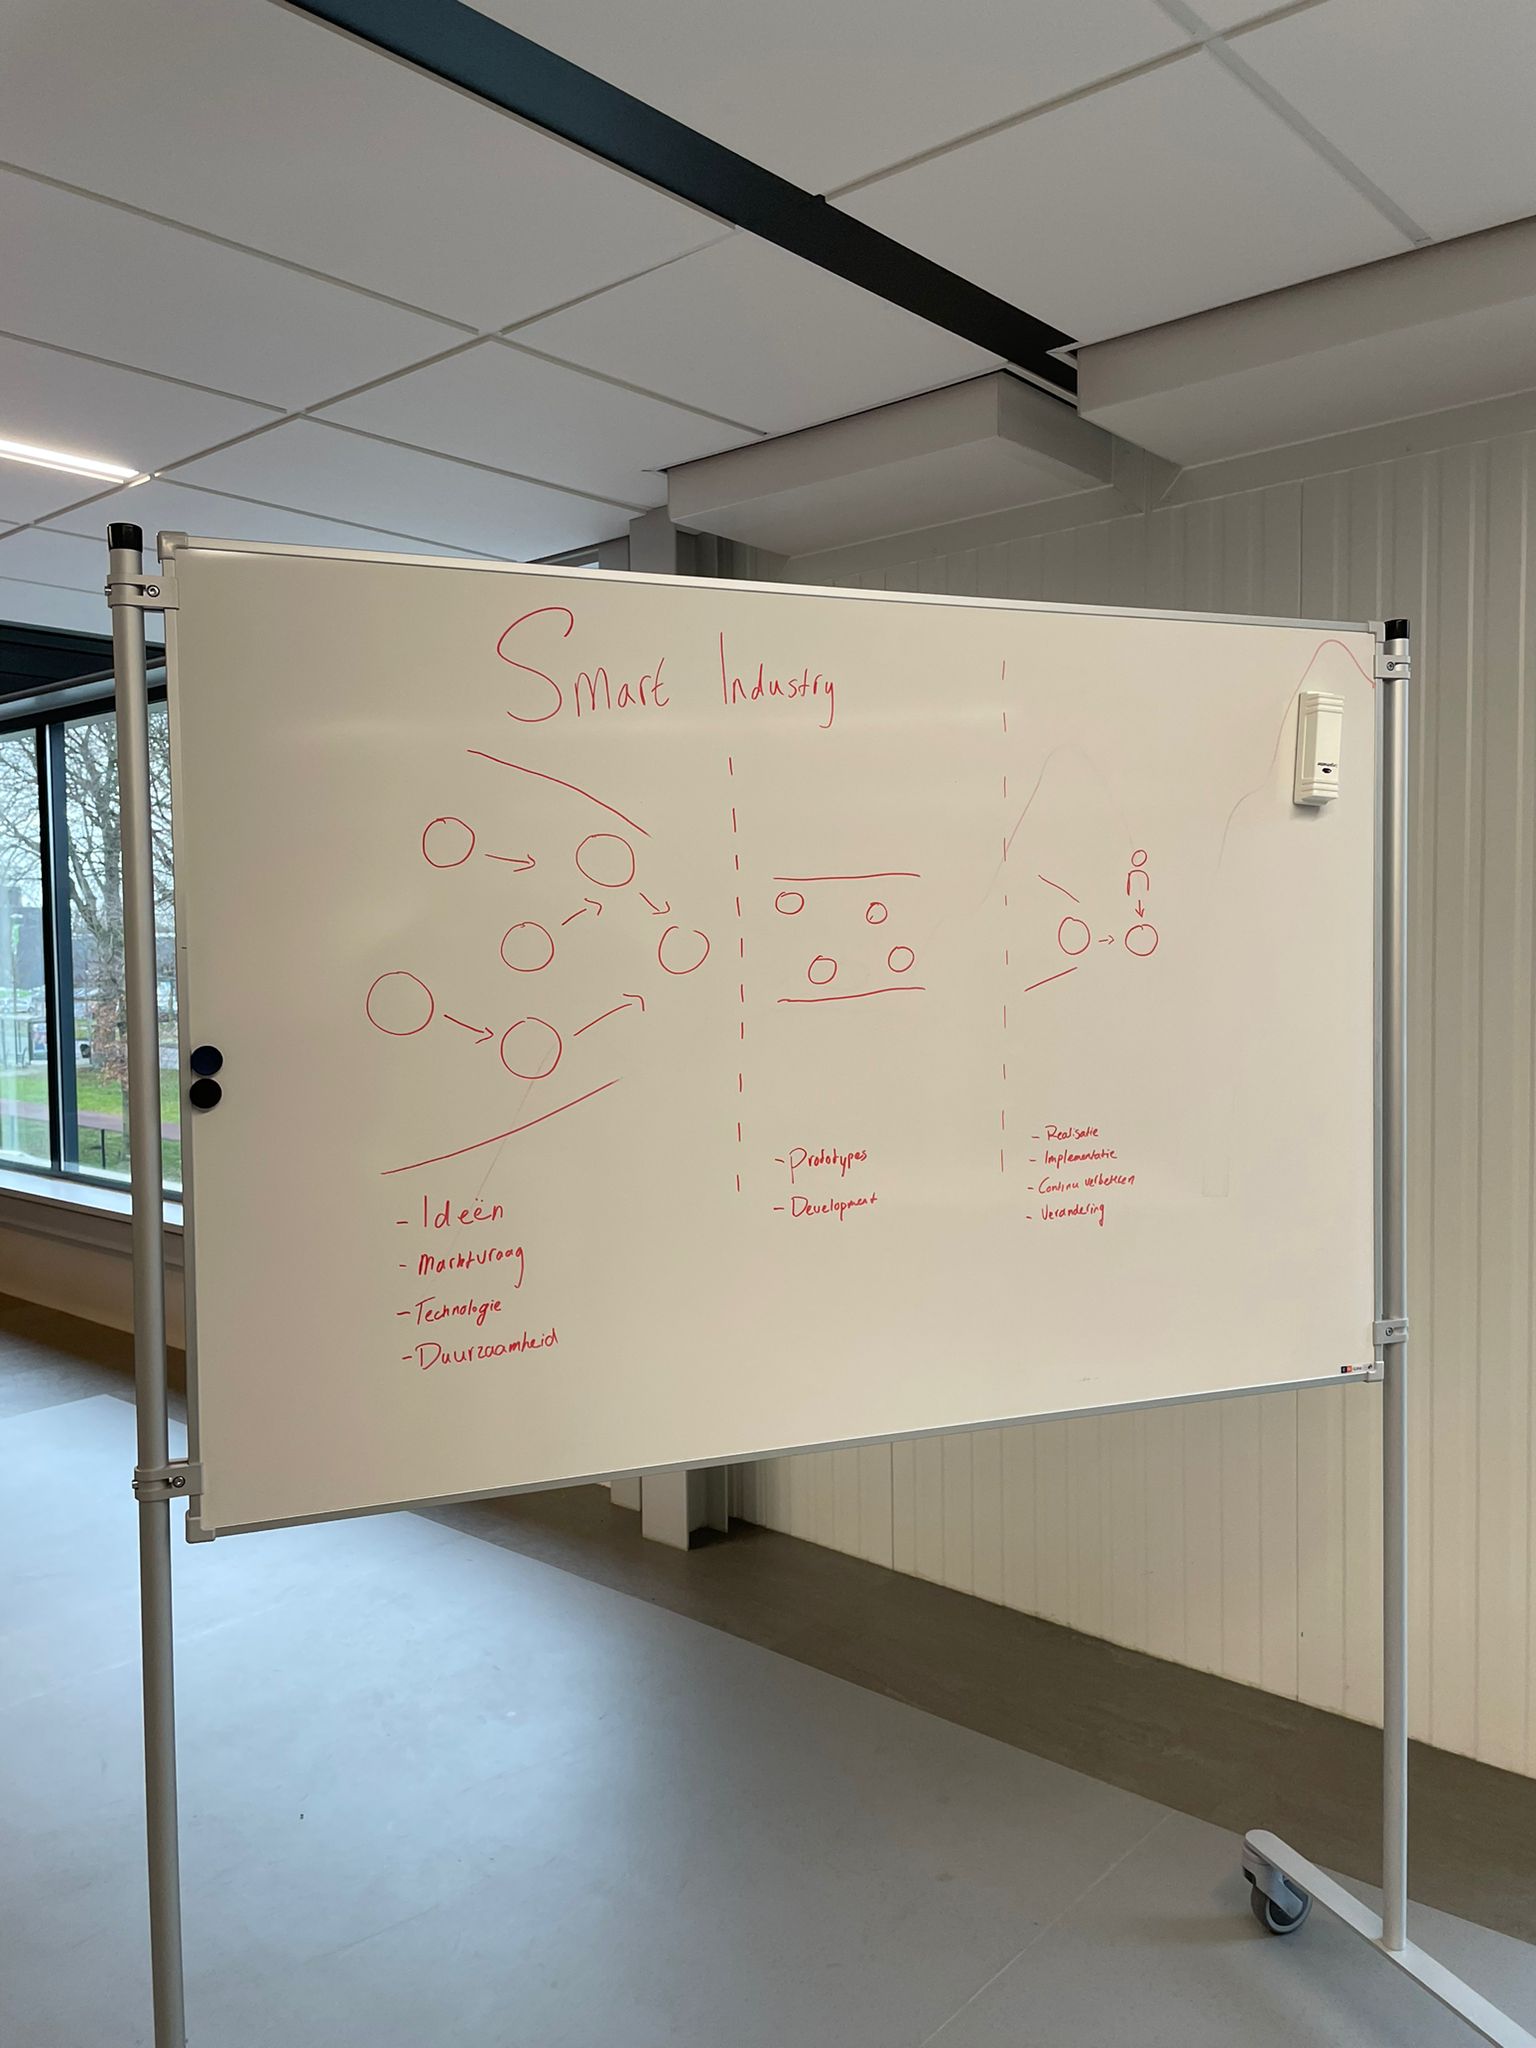 Smart Industry
- Ideën
- Marktvraag
- Technologie
- Duurzaamheid
- Prototypes
- Development
- Realisatie
- Implementatie
- Continu verbeteren
- Verandering